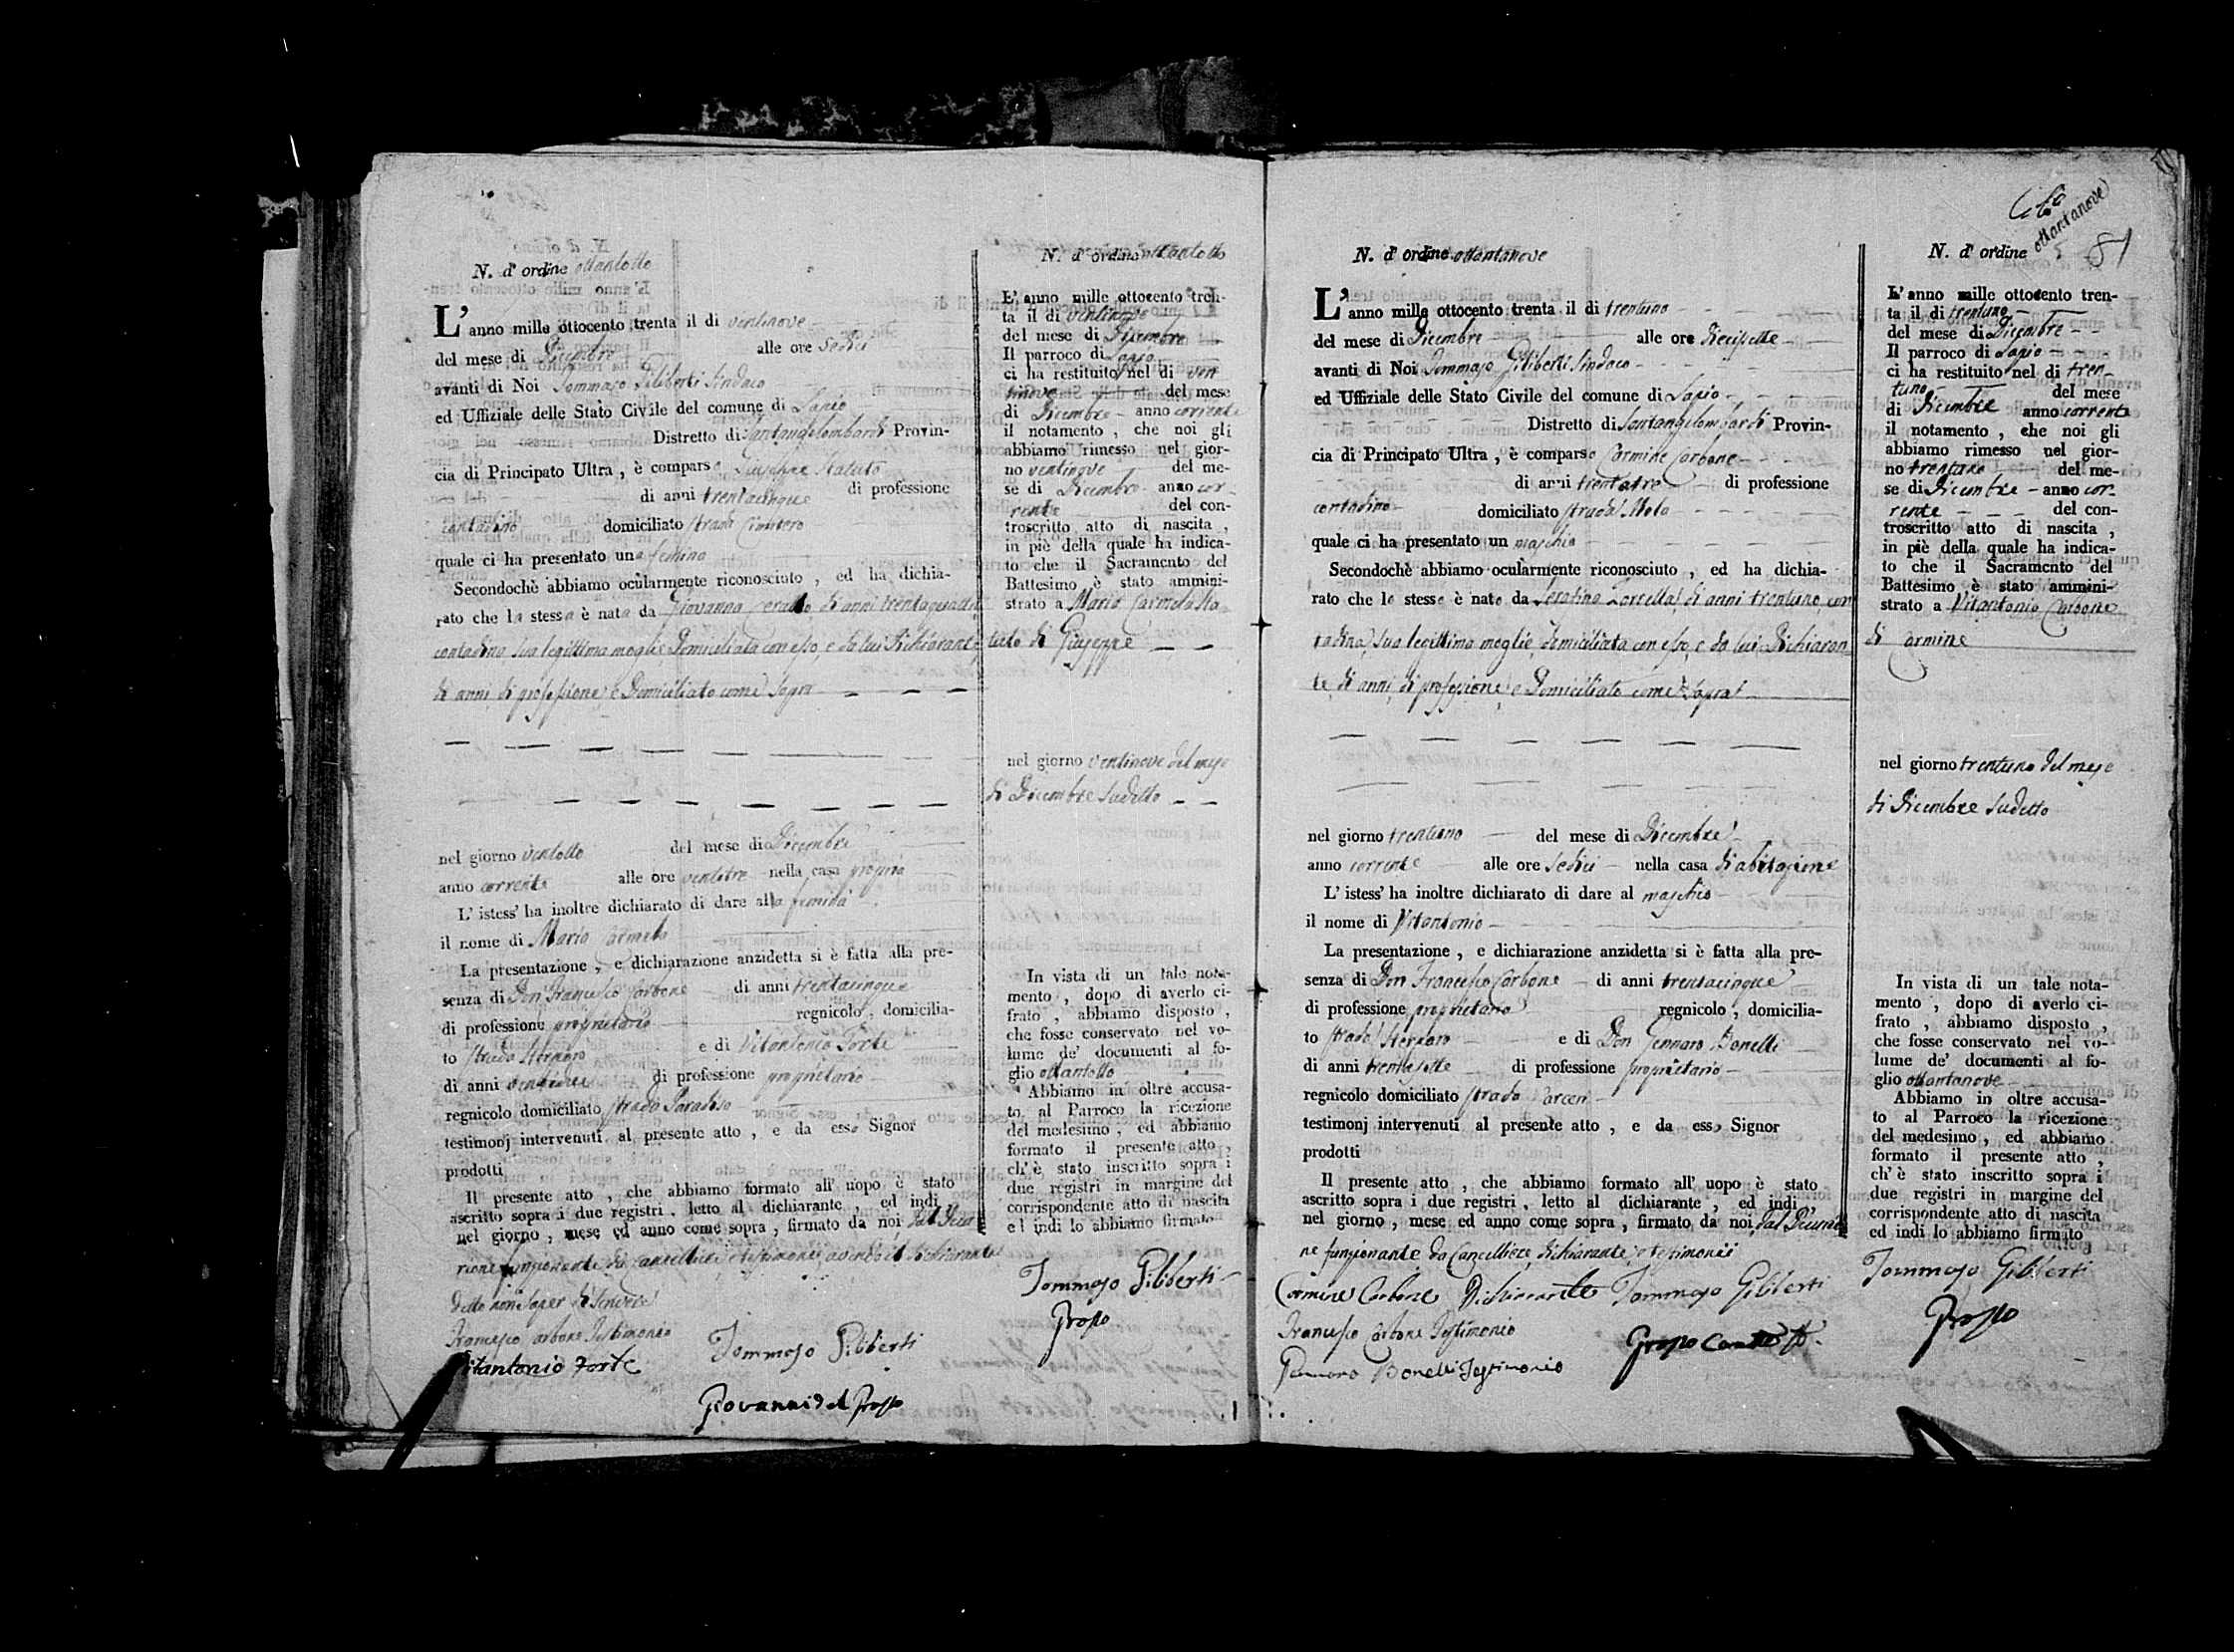 N. d' ordine ottantotto
L' anno mille ottocento trenta il di ventinove
del mese di Dicembre alle ore sedici
avanti di Noi Tommaso Piliberti Sindaco
ed Uffiziale delle Stato Civile del comune di Lapio
Distretto di Santangelombardi Provin-
cia di Principato Ultra , è comparso Giuseppe
di anni trentacinque di professione
contadino domiciliato strada Cimitero
quale ci ha presentato una femina
Secondochè abbiamo ocularmente riconosciuto , ed ha dichia-
rato che la stessa è nata da Giovanna di anni trentaquattro
contadina sua legittima moglie Domiciliata con esso, e da lui Dichiarante
di anni, di professione, e Domiciliato come sopra
nel giorno ventotto del mese di Dicembre
anno corrente alle ore ventitre nella casa propria
L' istess' ha inoltre dichiarato di dare alla femina
il nome di Maria Carmela
La presentazione , e dichiarazione anzidetta si è fatta alla pre-
senza di Don Francesco Carbone di anni trentacinque
di professione proprietario regnicolo , domicilia-
to strada e di Vitantonio Forte
di anni di professione proprietario
regnicolo domiciliato strada Paradiso
testimonj intervenuti al presente atto , e da esso Signor
prodotti
Il presente atto , che abbiamo formato all' uopo è stato
ascritto sopra i due registri , letto al dichiarante , ed indi
nel giorno , mese ed anno come sopra , firmato da noi, dal Decu-
rione funzionante da Cancelliere e testimonii, avendo il dichiarante
detto non saper di scrivere
Francesco Carbone Testimonio
Vitantonio Forte
Tommaso Piliberti
Giovanni del Grosso
N. d' ordine ottantotto
L' anno mille ottocento tren-
ta il di ventinove
del mese di Dicembre
Il parroco di Lapio
ci ha restituito nel di ven
tinove del mese
di Dicembre anno corrente
il notamento , che noi gli
abbiamo rimesso nel gior-
no ventinove del me-
se di Dicembre anno cor-
rente del con-
troscritto atto di nascita ,
in piè della quale ha indica-
to che il Sacramento del
Battesimo è stato ammini-
strato a Maria Carmela
di Giuseppe
nel giorno ventinove del mese
di Dicembre sudetto
In vista di un tale nota-
mento , dopo di averlo ci-
frato , abbiamo disposto ,
che fosse conservato nel vo-
lume de' documenti al fo-
glio ottantotto
Abbiamo in oltre accusa-
to al Parroco la ricezione
del medesimo , ed abbiamo
formato il presente atto ,
ch' è stato inscritto sopra i
due registri in margine del
corrispondente atto di nascita
ed indi lo abbiamo firmato
Tommaso Piliberti
Grosso
N. d' ordine ottantanove
L' anno mille ottocento trenta il di trentuno
del mese di Dicembre alle ore Diecisette
avanti di Noi Tommaso Piliberti Sindaco
ed Uffiziale delle Stato Civile del comune di Lapio
Distretto di Santangelombardi Provin-
cia di Principato Ultra , è comparso Carmine Carbone
di anni trentatre di professione
contadino domiciliato strada Molo
quale ci ha presentato un maschio
Secondochè abbiamo ocularmente riconosciuto , ed ha dichia-
rato che lo stesso è nato da Serafina di anni trentuno con
tadina, sua legittima moglie, Domiciliata con esso, e da lui Dichiaran
te, di anni, di professione, e Domiciliato come sopra
nel giorno trentuno del mese di Dicembre
anno corrente alle ore sedici nella casa di abitazione
L' istess' ha inoltre dichiarato di dare al maschio
il nome di Vitantonio
La presentazione , e dichiarazione anzidetta si è fatta alla pre-
senza di Don Francesco Carbone di anni trentacinque
di professione proprietario regnicolo , domicilia-
to strada e di Don Gennaro Bonelli
di anni trentasette di professione proprietario
regnicolo domiciliato strada Carceri
testimonj intervenuti al presente atto , e da esso Signor
prodotti
Il presente atto , che abbiamo formato all' uopo è stato
ascritto sopra i due registri , letto al dichiarante , ed indi
nel giorno , mese ed anno come sopra , firmato da noi, dal Decurio
ne funzionante da Cancelliere, dichiarante, e testimonii
Carmine Carbone Dichiarante Tommaso Piliberti
Francesco Carbone Testimonio
Gennaro Bonelli Testimonio
Grosso
ottantanove
81
N. d' ordine
L' anno mille ottocento tren-
ta il di trentuno
del mese di Dicembre
Il parroco di Lapio
ci ha restituito nel di tren-
tuno del mese
di Dicembre anno corrente
il notamento , che noi gli
abbiamo rimesso nel gior-
no trentuno del me-
se di Dicembre anno cor-
rente del con-
troscritto atto di nascita ,
in piè della quale ha indica-
to che il Sacramento del
Battesimo è stato ammini-
strato a Vitantonio Carbone
di Carmine
nel giorno trentuno del mese
di Dicembre sudetto
In vista di un tale nota-
mento , dopo di averlo ci-
frato , abbiamo disposto ,
che fosse conservato nel vo-
lume de' documenti al fo-
glio ottantanove
Abbiamo in oltre accusa-
to al Parroco la ricezione
del medesimo , ed abbiamo
formato il presente atto ,
ch' è stato inscritto sopra i
due registri in margine del
corrispondente atto di nascita
ed indi lo abbiamo firmato
Tommaso Piliberti
Grosso